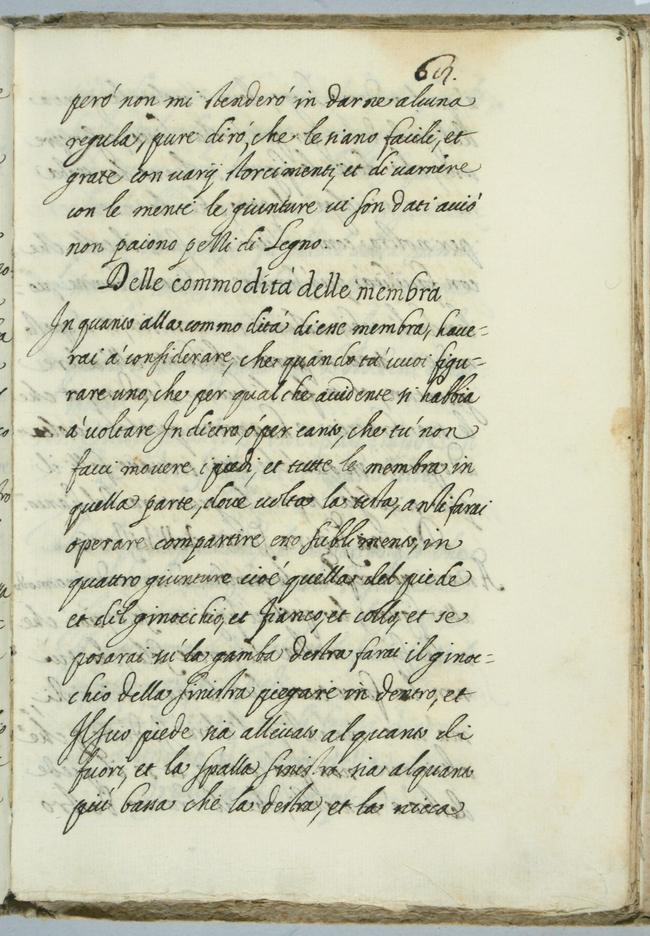 però non mi stenderó in darne alcuna
regula, pure diró, che le siano facili, et
grate con varij storcimenti, et di varne
con le mente le giunture vi son dati acció
non paiono pezzi di Legno.
Delle commoditá delle membra
In quanto alla commoditá di esse membra, have=
rai á considerare, che quando tú vuoi figu=
rare uno, che per qualche accidente si habbia
á voltare Indietro, ó per canto, che tú non
facci movere i piedi, et tutte le membra in
quella parte, dove volta la testa, anzi farai
operare compartire esso in
quattro giunture cioé quella del piede
et del ginocchio, et fianco, et collo, et se
posarai sú la gamba destra farai il ginoc=
chio della sinistra piegare in dentro, et
Il suo piede sia allevato alquanto di
fuori, et la spalla sinistra sia alquanto
piú bassa che la destra, et la nucca